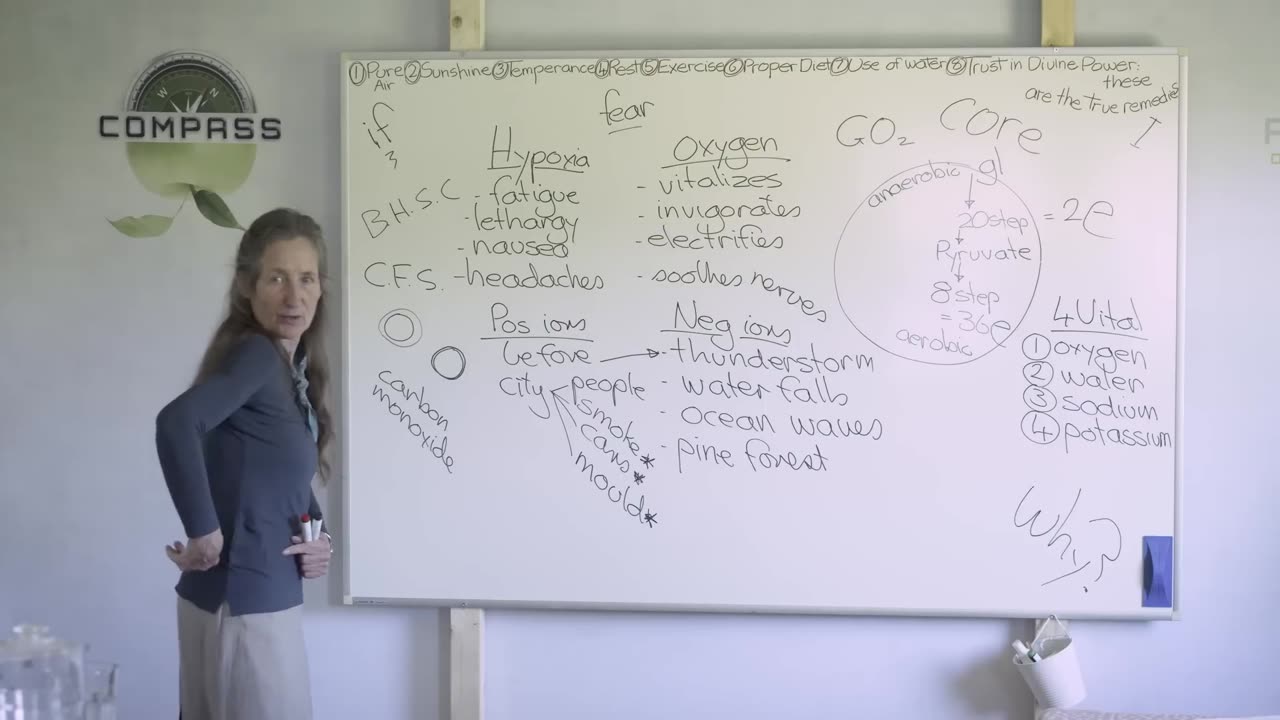 COMPASS
N
W
①Pure②Sunshine③Temperance④Rest⑤Exercise⑥Proper Diet⑦Use of water⑧Trust in Divine Power:
Air
these
are the true remedies
if
3
fear
GO₂
Core
Hypoxia
B.H.S.C - fatigue
- lethargy
- nausea
C.F.S. - headaches
Oxygen
- vitalizes
- invigorates
- electrifies
- soothes nerves
anaerobic
gl
20step = 2e
Pyruvate
8 step
= 36e
aerobic
Pos ions
before
city
people
smoke
cars*
mould*
carbon
monoxide
Neg ions
- thunderstorm
- water falls
- ocean waves
- pine forest
4 Vital
① oxygen
② water
③ sodium
④ potassium
Why?